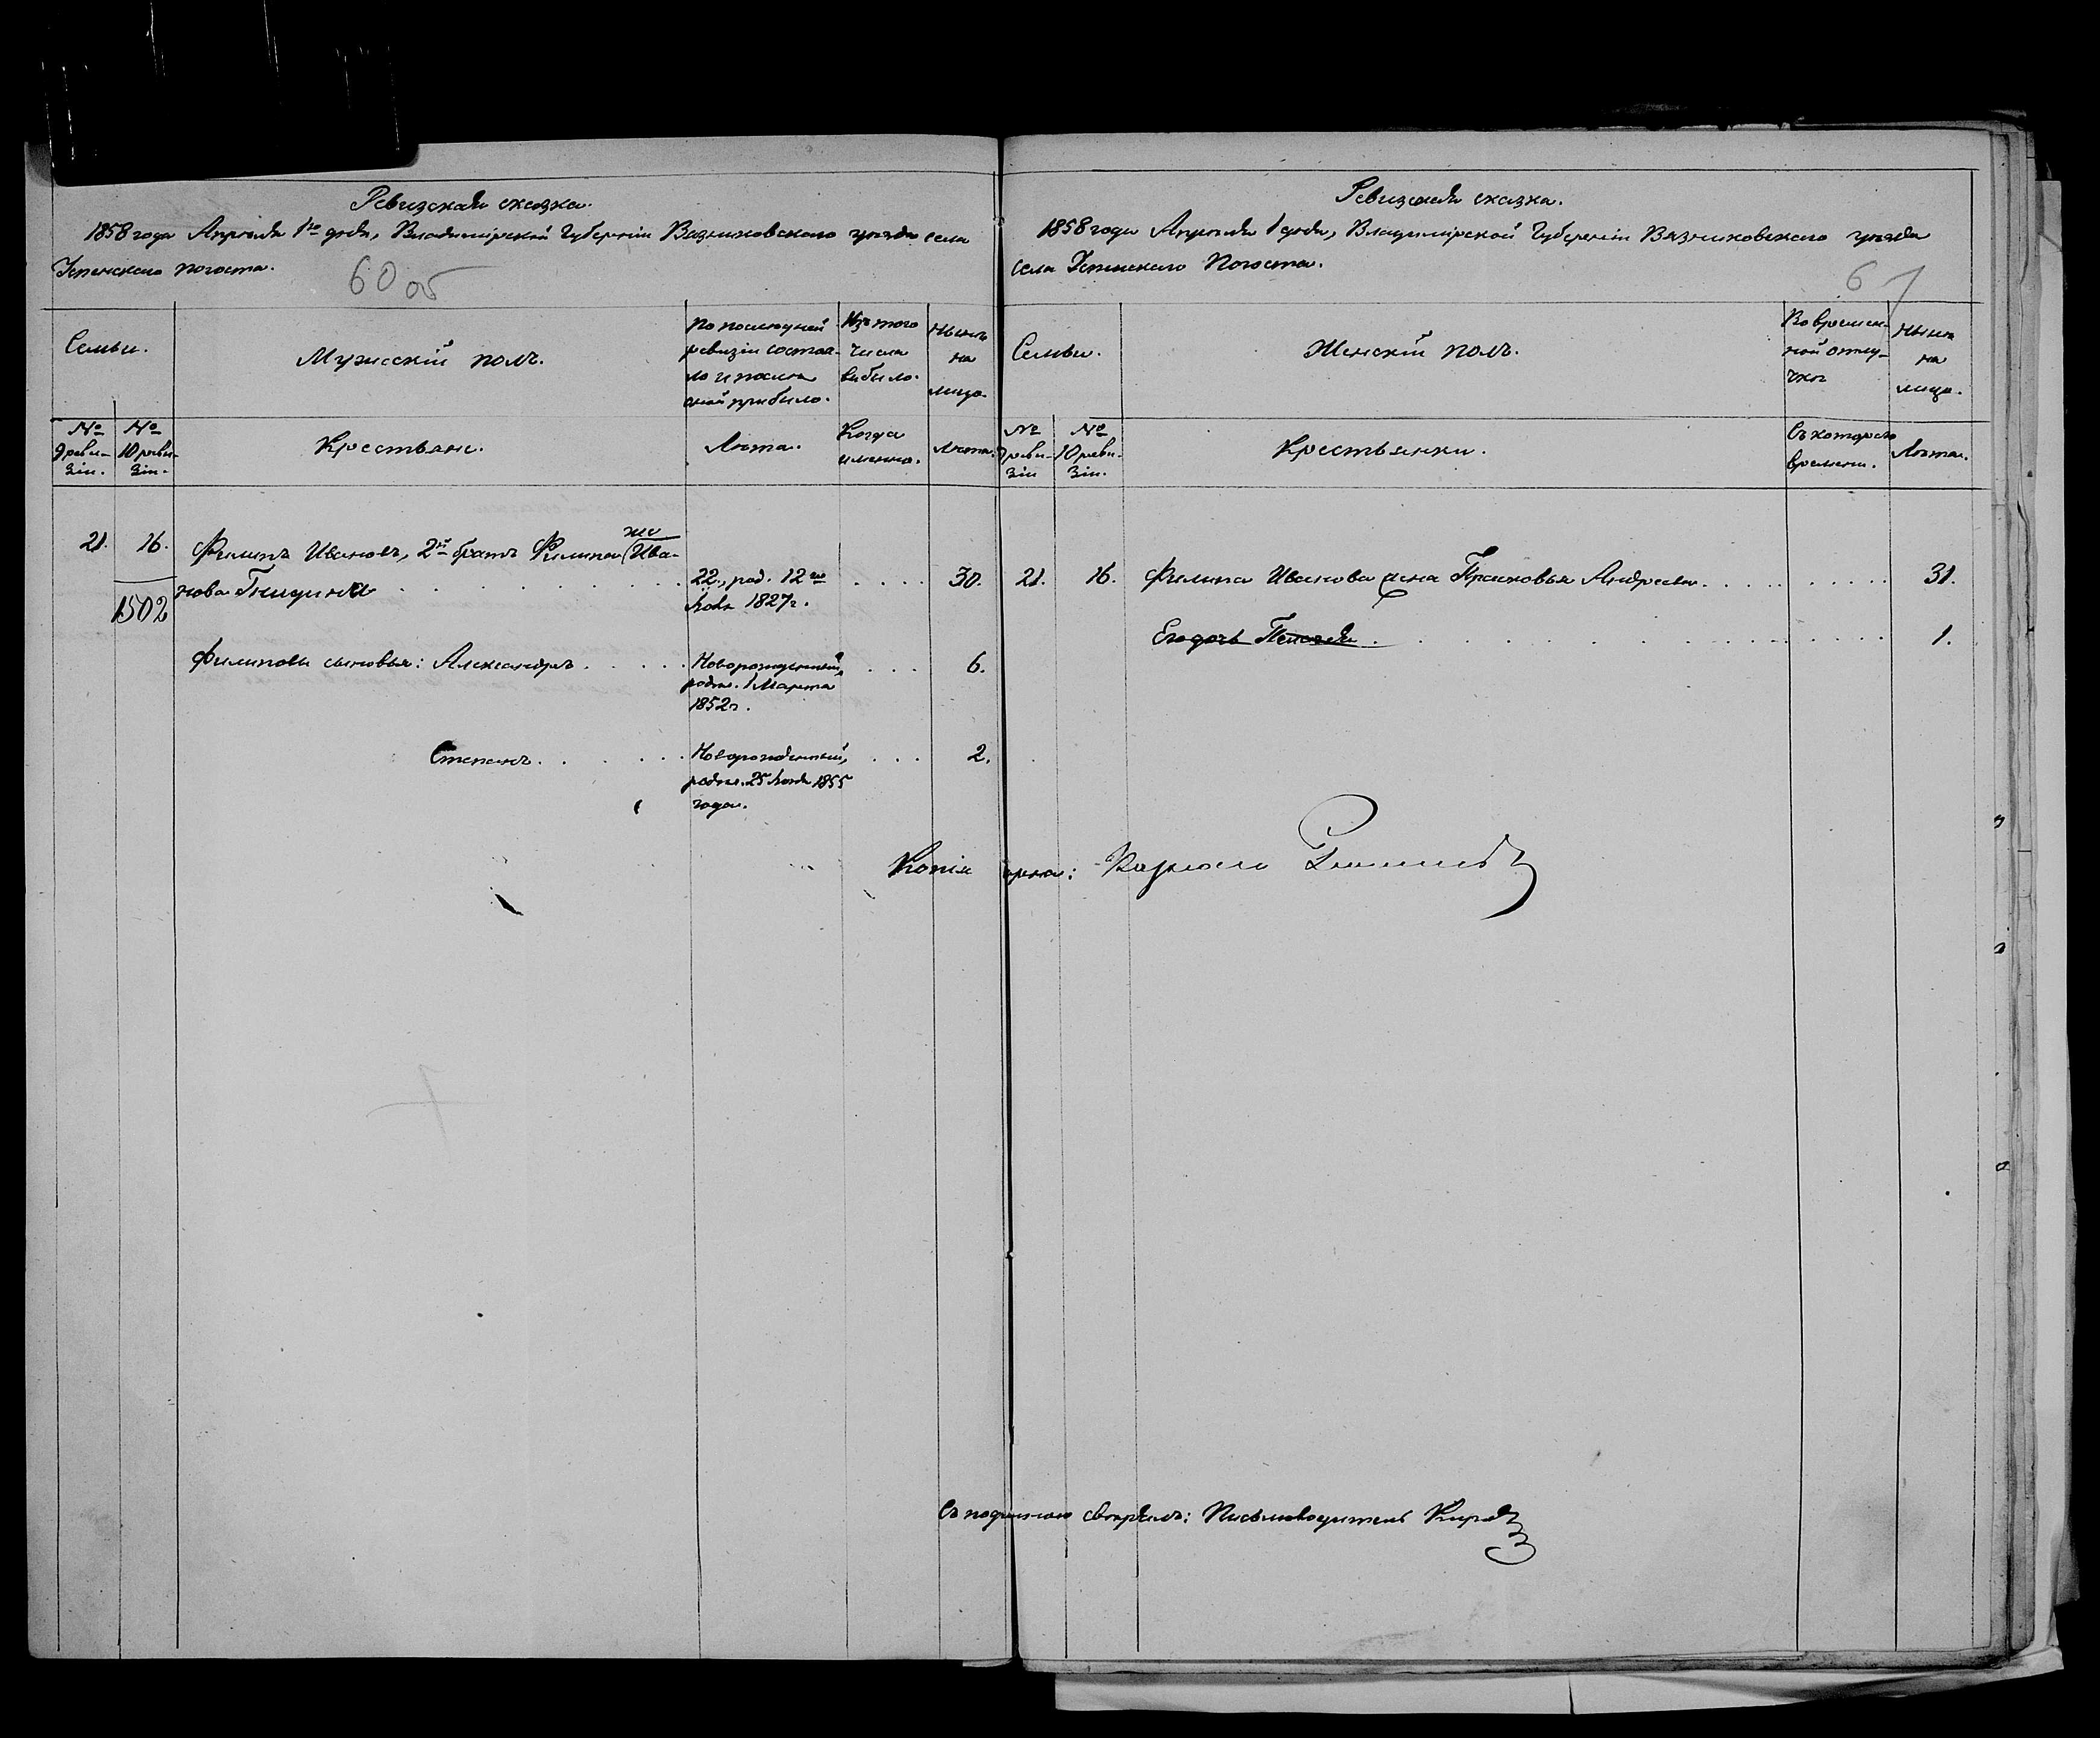 Ревизская сказка.
1858 года Апрѣля 1го дня, Владимірской Губерніи Вязниковскаго уѣзда села
Успенскаго погоста.
60 об
Семьи.
Мужескій полъ.
По послѣдней
ревизіи состоя-
ло и послѣ
оной прибыло.
Изъ того
числа
выбыло.
Нынѣ
на
лицо.
№
9 реви-
зіи.
№
10 реви-
зіи.
Крестьяне.
Лѣта.
Когда
именно.
Лѣта.
21.
16.
1502
Филипъ Ивановъ, 2й братъ Филипа же Ива-
нова
22, род. 12го
1827г.
30.
Филиповы сыновья: Александръ
Новорожденный,
родил. 1 Марта
1852г.
6.
Степанъ
Новорожденный,
родил. 25 1855
года.
2.
Ревизская сказка.
1858 года Апрѣля 1 дня, Владимірской Губерніи Вязниковскаго уѣзда
села Успенскаго Погоста.
61
Семьи.
Женскій полъ.
Во времен-
ной отлу-
чкѣ
Нынѣ
на
лицо.
№
9 реви-
зіи
№
10 реви-
зіи.
Крестьянки.
Съ котораго
времени.
Лѣта.
21.
16.
Филипа Иванова жена Прасковья Андреева
31.
Его дочь Пелагѣя
1.
Копія вѣрна:
Съ подлиннымъ свѣрялъ: Письмоводитель